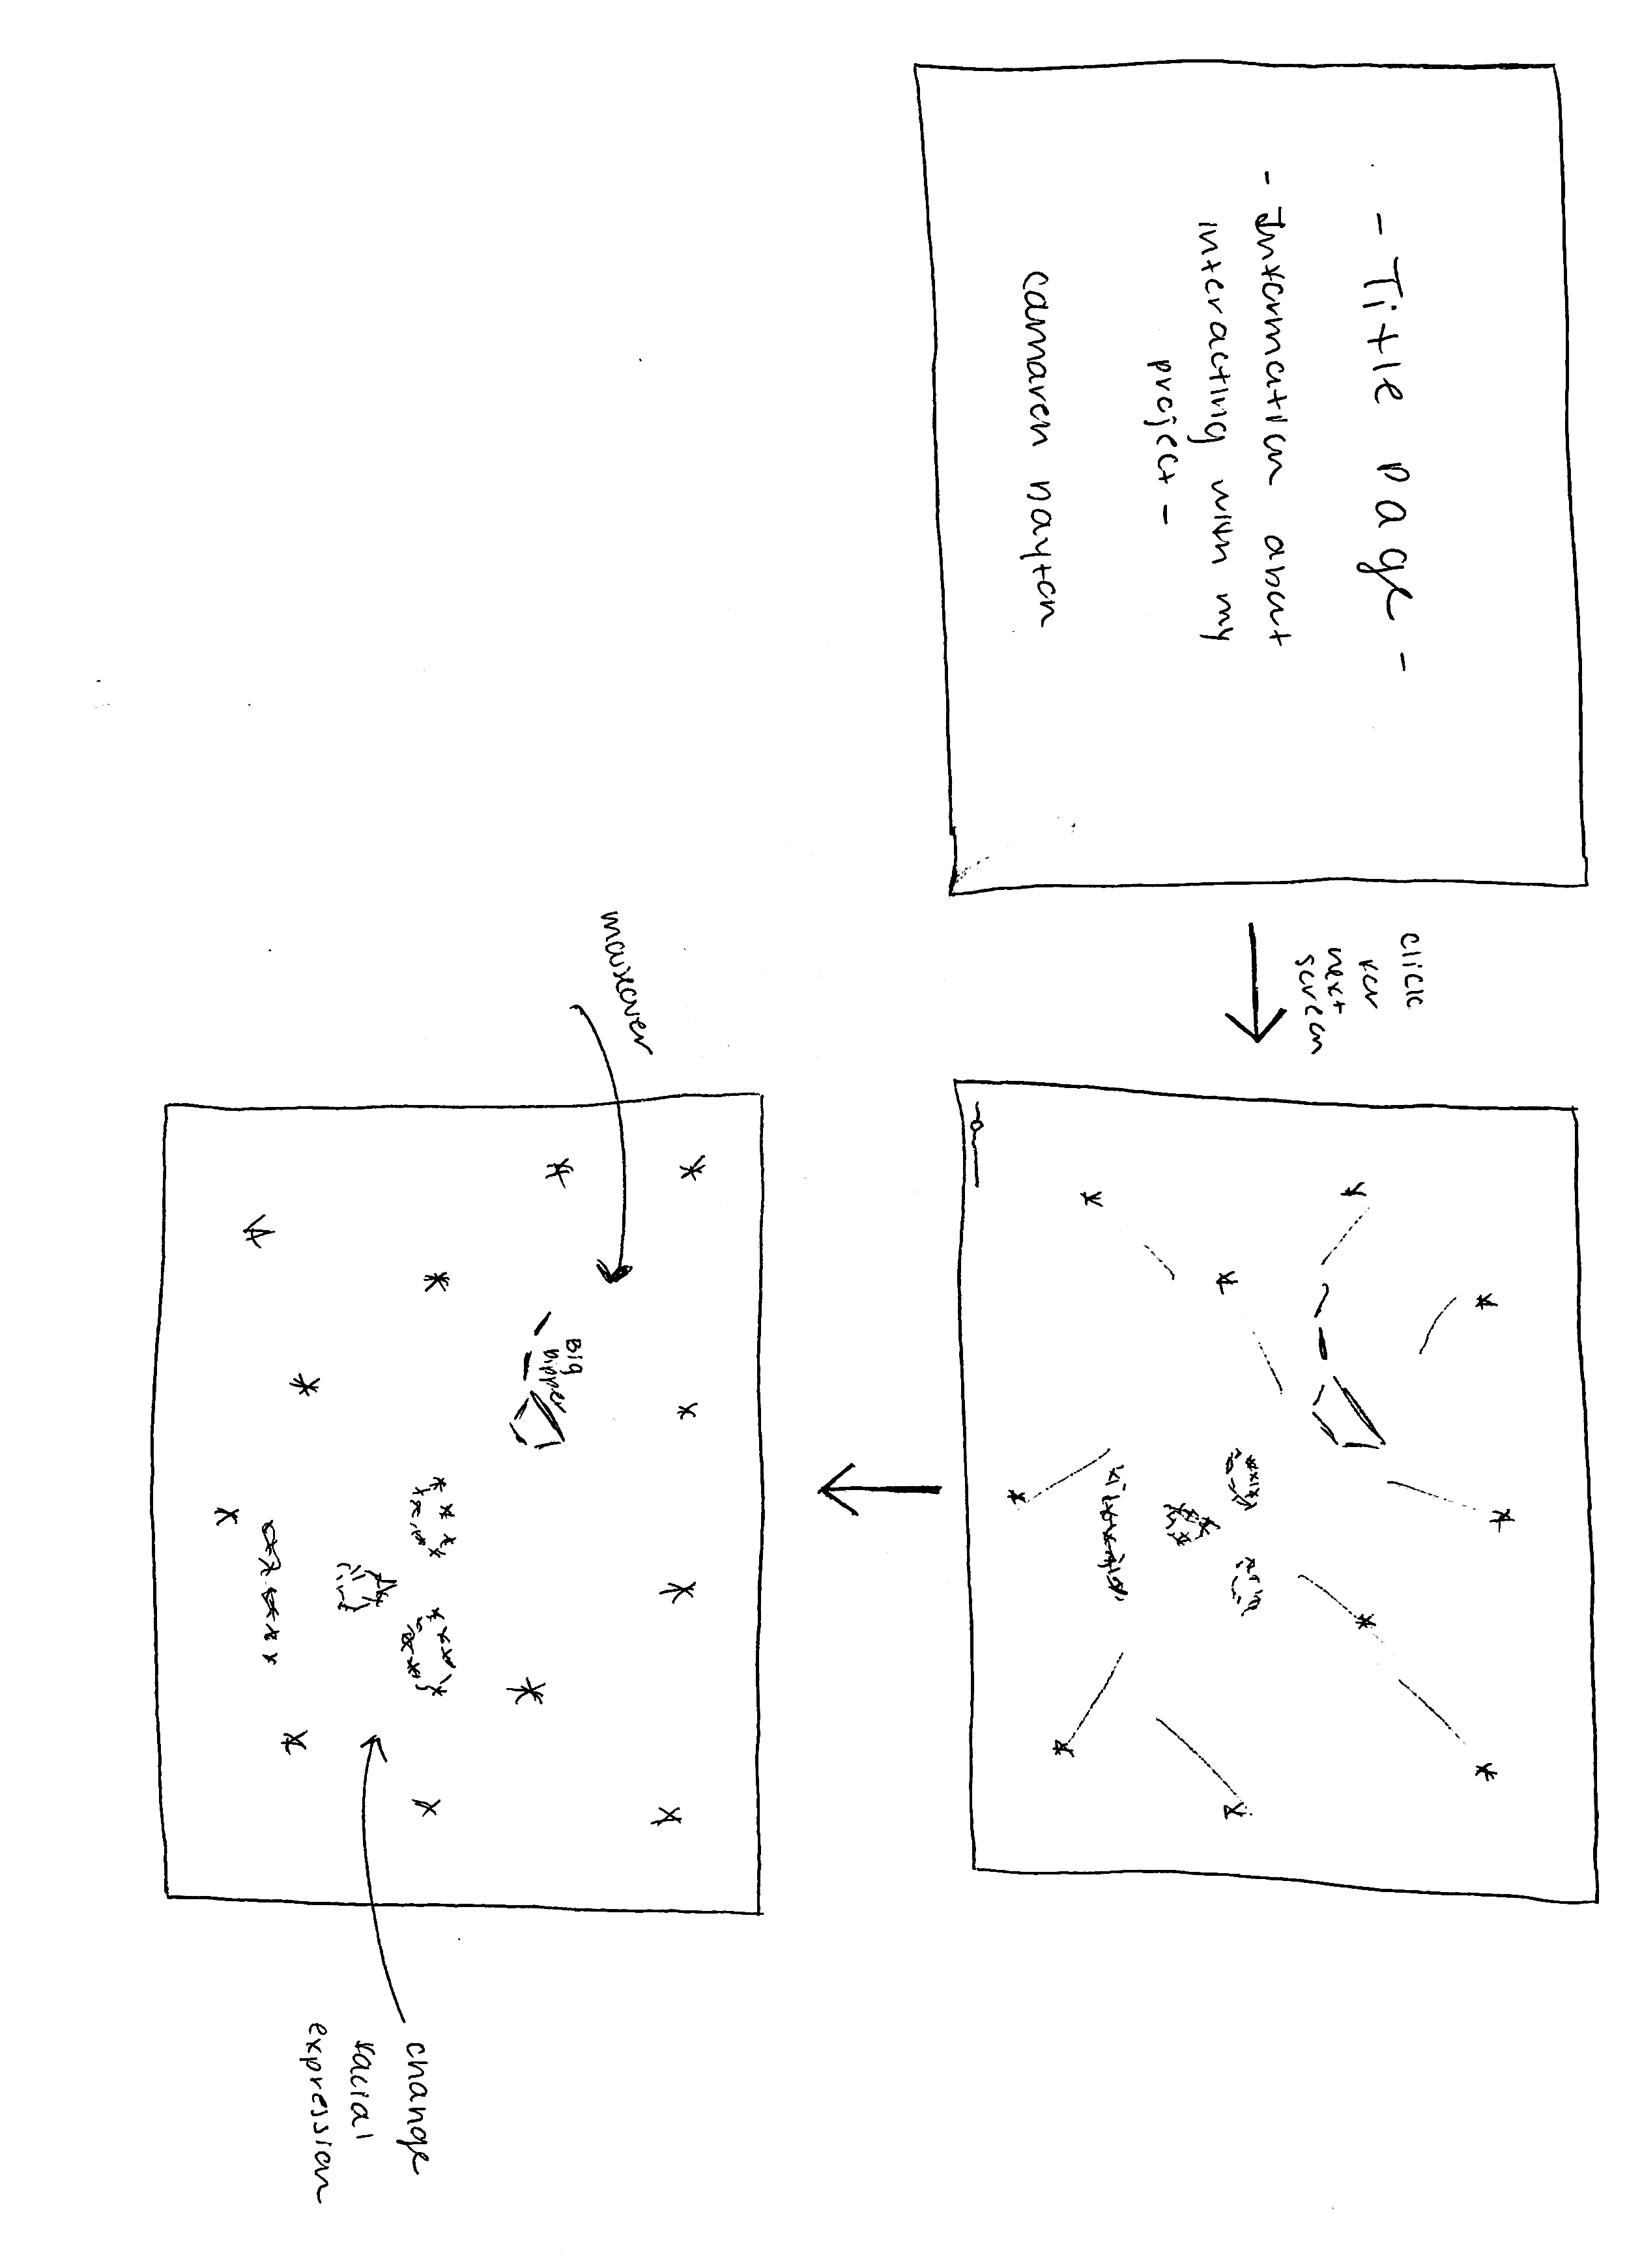 - Title page -
- Information about
interacting with my
project -
cannaren nayton
click
for
next
screen
mouseover
Big
Dipper
change
facial
expression